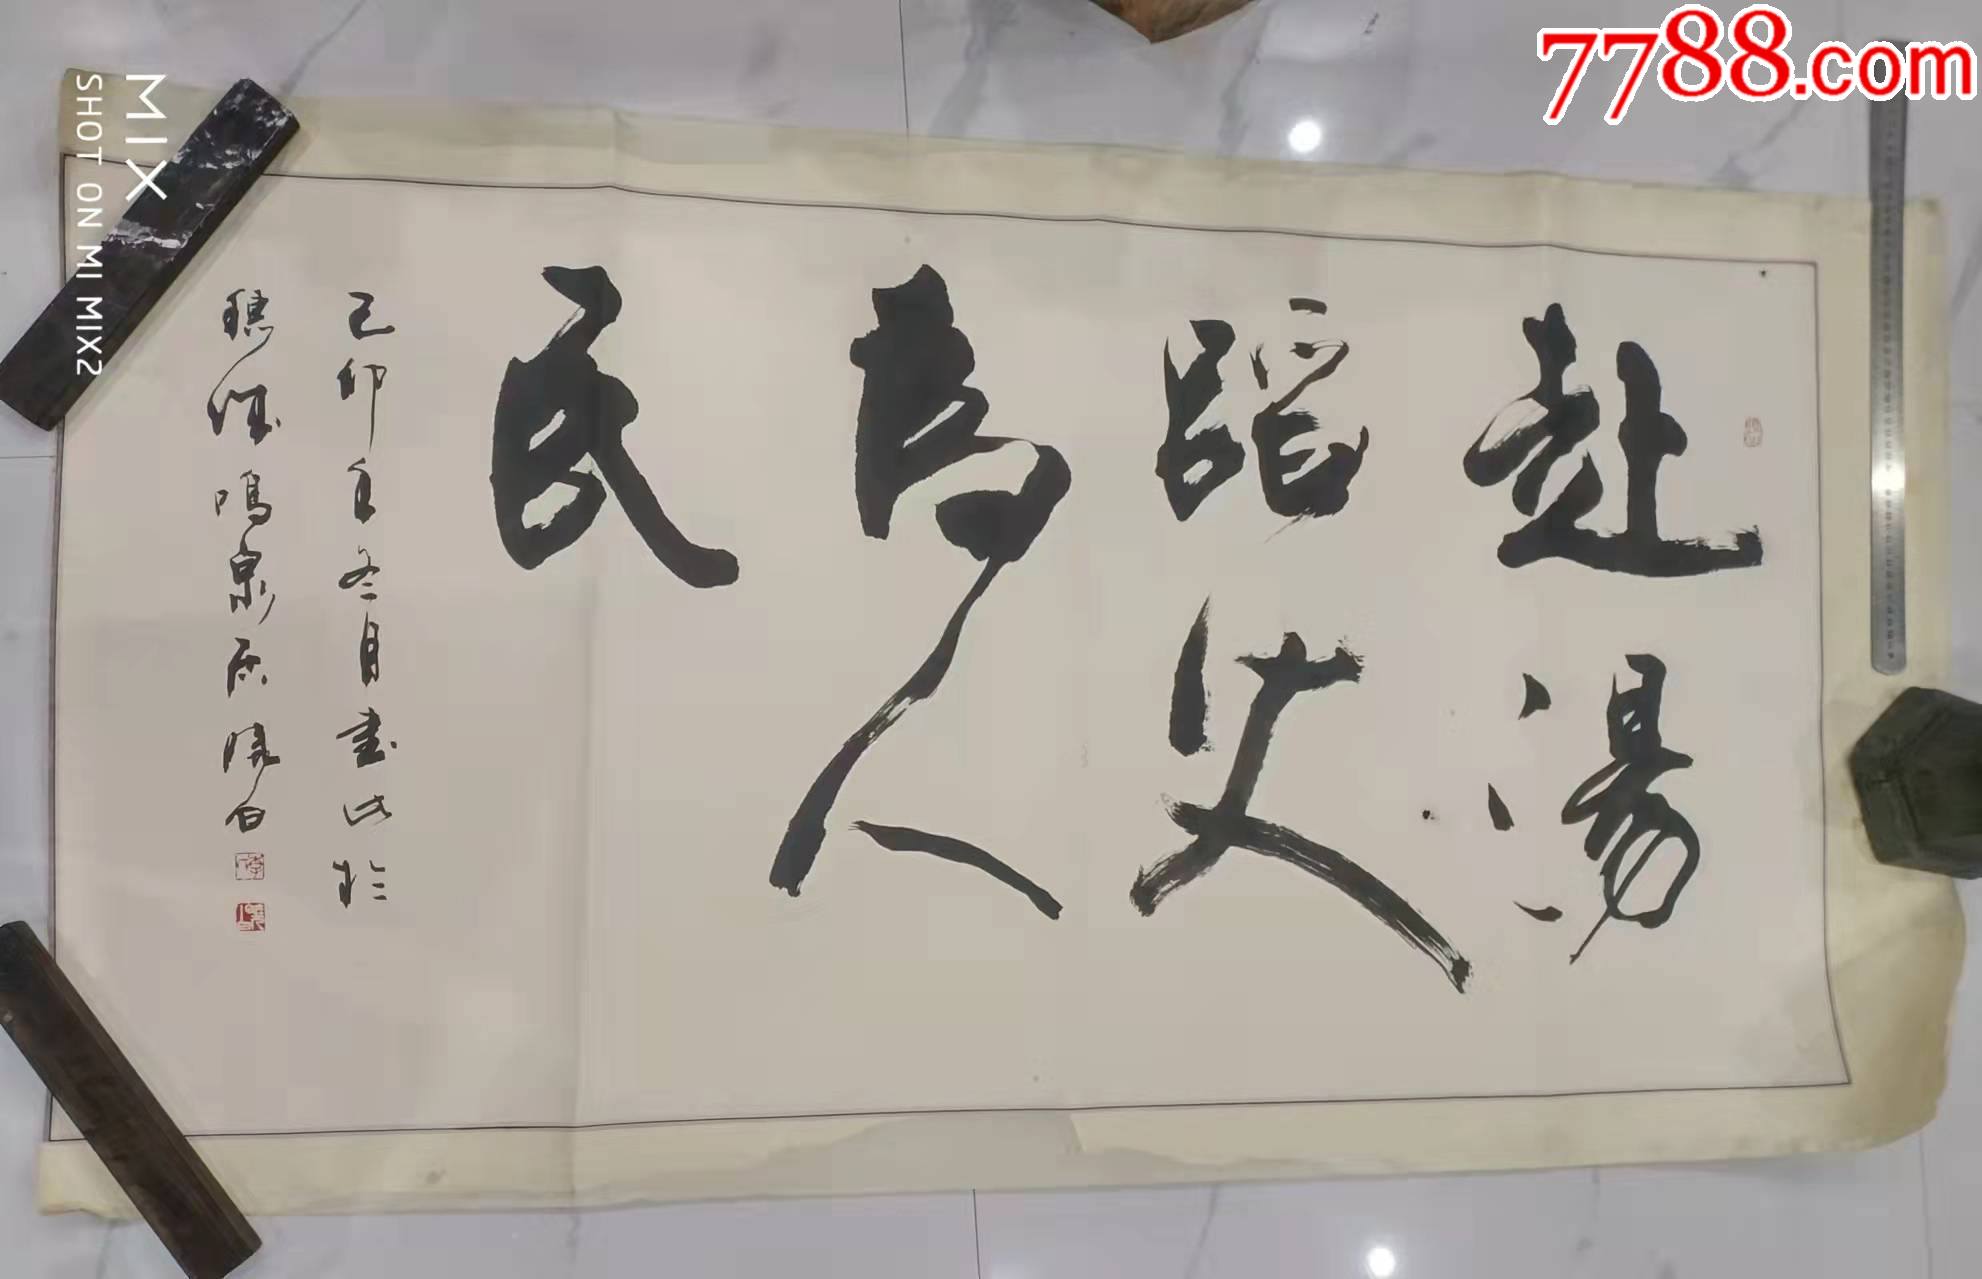 赴湯
蹈火
為人
民
己卯年冬月書此於
鳴泉居
7788.com
MIX
SHOT ON MI MIX2